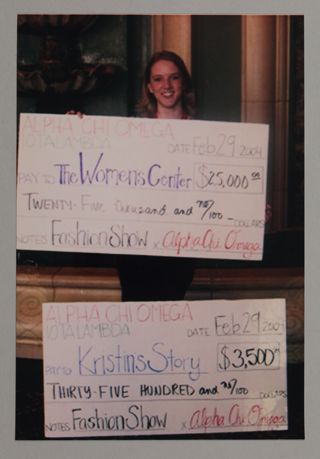 ALPHA CHI OMEGA
IOTA LAMBDA DATE Feb 29 2004
PAY TO The Womens Center $25,000.00
TWENTY-FIVE thousand and no/100 DOLLARS
NOTES Fashion Show x Alpha Chi Omega
ALPHA CHI OMEGA
IOTA LAMBDA DATE Feb 29 2004
PAY TO Kristins Story $3,500
THIRTY-FIVE HUNDRED and no/100 DOLLARS
NOTES Fashion Show x Alpha Chi Omega